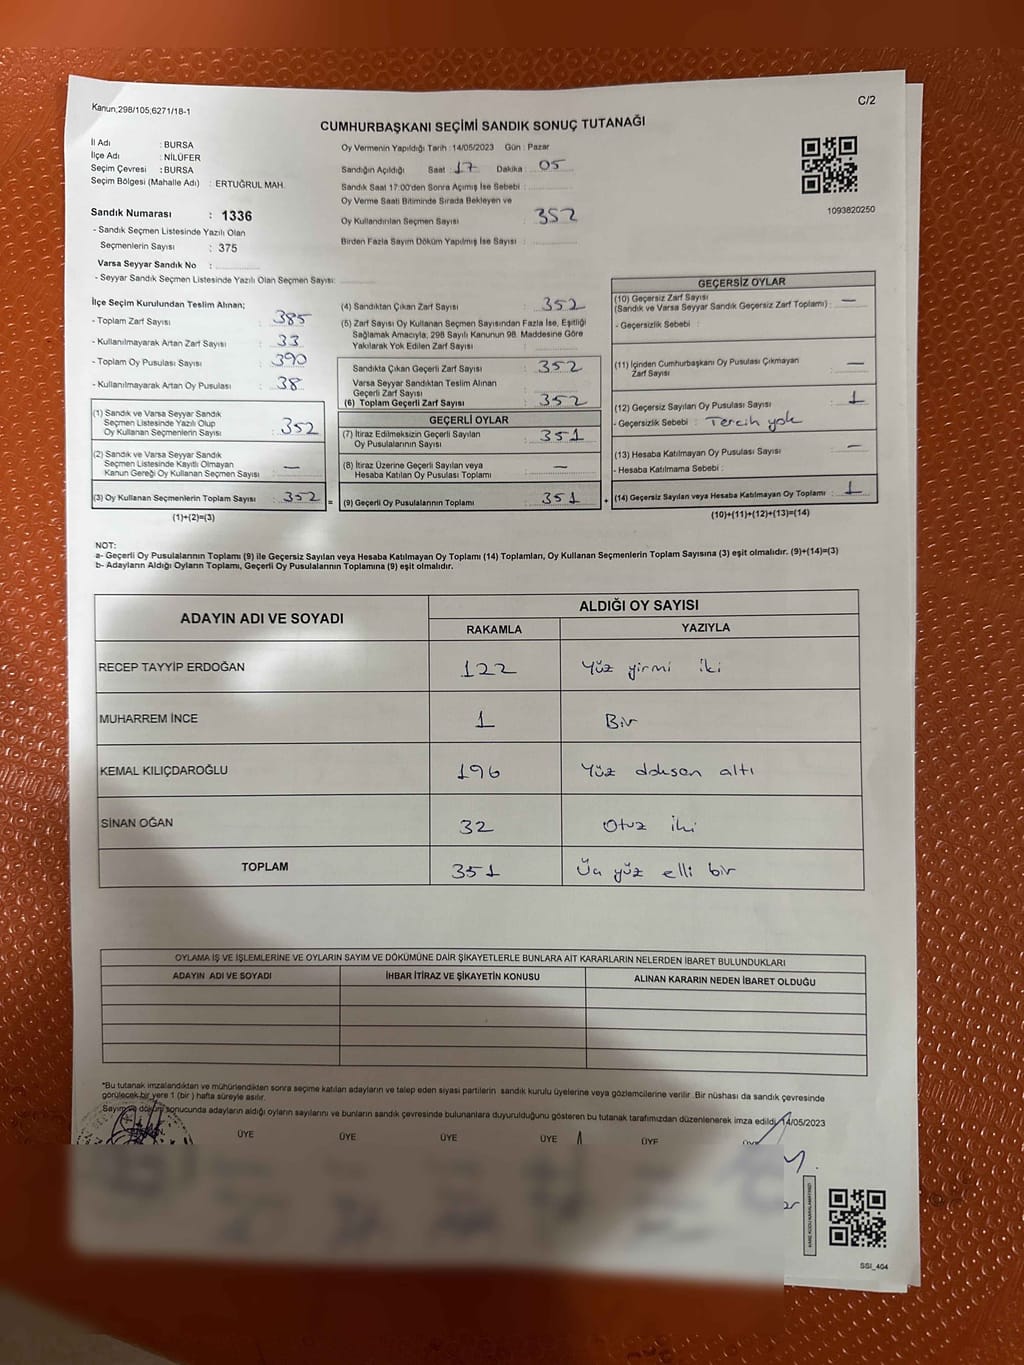 Kanun;298/105;6271/18-1
C/2
CUMHURBAŞKANI SEÇİMİ SANDIK SONUÇ TUTANAĞI
İl Adı : BURSA
İlçe Adı : NİLÜFER
Seçim Çevresi : BURSA
Seçim Bölgesi (Mahalle Adı) : ERTUĞRUL MAH.
Sandık Numarası : 1336
- Sandık Seçmen Listesinde Yazılı Olan
Seçmenlerin Sayısı : 375
Varsa Seyyar Sandık No :
- Seyyar Sandık Seçmen Listesinde Yazılı Olan Seçmen Sayısı:
Oy Vermenin Yapıldığı Tarih : 14/05/2023 Gün : Pazar
Sandığın Açıldığı Saat : 17 Dakika : 05
Sandık Saat 17:00'den Sonra Açılmış İse Sebebi :
Oy Verme Saati Bitiminde Sırada Bekleyen ve
Oy Kullandırılan Seçmen Sayısı : 352
Birden Fazla Sayım Döküm Yapılmış İse Sayısı :
1093820250
İlçe Seçim Kurulundan Teslim Alınan;
- Toplam Zarf Sayısı : 385
- Kullanılmayarak Artan Zarf Sayısı : 33
- Toplam Oy Pusulası Sayısı : 390
- Kullanılmayarak Artan Oy Pusulası : 38
(1) Sandık ve Varsa Seyyar Sandık
Seçmen Listesinde Yazılı Olup
Oy Kullanan Seçmenlerin Sayısı : 352
(2) Sandık ve Varsa Seyyar Sandık
Seçmen Listesinde Kayıtlı Olmayan
Kanun Gereği Oy Kullanan Seçmen Sayısı : —
(3) Oy Kullanan Seçmenlerin Toplam Sayısı : 352 =
(1)+(2)=(3)
(4) Sandıktan Çıkan Zarf Sayısı : 352
(5) Zarf Sayısı Oy Kullanan Seçmen Sayısından Fazla İse, Eşitliği
Sağlamak Amacıyla, 298 Sayılı Kanunun 98. Maddesine Göre
Yakılarak Yok Edilen Zarf Sayısı :
Sandıkta Çıkan Geçerli Zarf Sayısı : 352
Varsa Seyyar Sandıktan Teslim Alınan
Geçerli Zarf Sayısı :
(6) Toplam Geçerli Zarf Sayısı : 352
GEÇERLİ OYLAR
(7) İtiraz Edilmeksizin Geçerli Sayılan
Oy Pusulalarının Sayısı : 351
(8) İtiraz Üzerine Geçerli Sayılan veya
Hesaba Katılan Oy Pusulaları Toplamı : —
(9) Geçerli Oy Pusulalarının Toplamı : 351 +
GEÇERSİZ OYLAR
(10) Geçersiz Zarf Sayısı
(Sandık ve Varsa Seyyar Sandık Geçersiz Zarf Toplamı) : —
- Geçersizlik Sebebi :
(11) İçinden Cumhurbaşkanı Oy Pusulası Çıkmayan
Zarf Sayısı : —
(12) Geçersiz Sayılan Oy Pusulası Sayısı : 1
- Geçersizlik Sebebi : Tercih yok
(13) Hesaba Katılmayan Oy Pusulası Sayısı : —
- Hesaba Katılmama Sebebi :
(14) Geçersiz Sayılan veya Hesaba Katılmayan Oy Toplamı : 1
(10)+(11)+(12)+(13)=(14)
NOT:
a- Geçerli Oy Pusulalarının Toplamı (9) ile Geçersiz Sayılan veya Hesaba Katılmayan Oy Toplamı (14) Toplamları, Oy Kullanan Seçmenlerin Toplam Sayısına (3) eşit olmalıdır. (9)+(14)=(3)
b- Adayların Aldığı Oyların Toplamı, Geçerli Oy Pusulalarının Toplamına (9) eşit olmalıdır.
ADAYIN ADI VE SOYADI ALDIĞI OY SAYISI
RAKAMLA YAZIYLA
RECEP TAYYİP ERDOĞAN 122 Yüz yirmi iki
MUHARREM İNCE 1 Bir
KEMAL KILIÇDAROĞLU 196 Yüz doksan altı
SİNAN OĞAN 32 Otuz iki
TOPLAM 351 Üç yüz elli bir
OYLAMA İŞ VE İŞLEMLERİNE VE OYLARIN SAYIM VE DÖKÜMÜNE DAİR ŞİKAYETLERLE BUNLARA AİT KARARLARIN NELERDEN İBARET BULUNDUKLARI
ADAYIN ADI VE SOYADI İHBAR İTİRAZ VE ŞİKAYETİN KONUSU ALINAN KARARIN NEDEN İBARET OLDUĞU
*Bu tutanak imzalandıktan ve mühürlendikten sonra seçime katılan adayların ve talep eden siyasi partilerin sandık kurulu üyelerine veya gözlemcilerine verilir. Bir nüshası da sandık çevresinde
görülecek bir yere 1 (bir) hafta süreyle asılır.
Sayım ve döküm sonucunda adayların aldığı oyların sayılarını ve bunların sandık çevresinde bulunanlara duyurulduğunu gösteren bu tutanak tarafımızdan düzenlenerek imza edildi. 14/05/2023
ÜYE ÜYE ÜYE ÜYE ÜYE
SSI_404